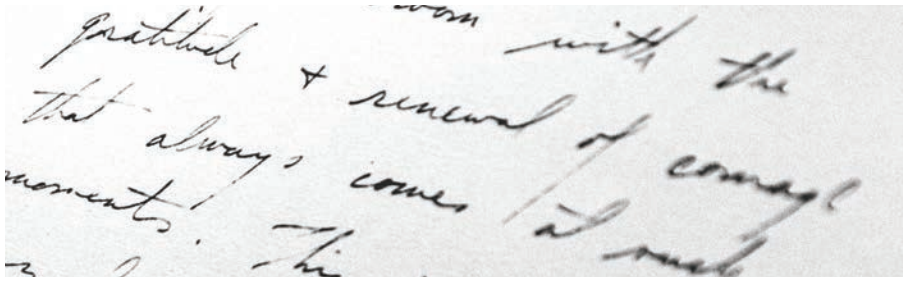 with the
gratitude + renewal of courage
that always comes at such
moments. This